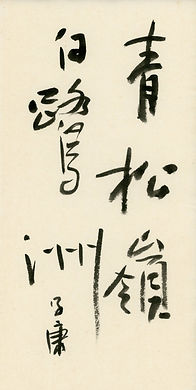 青松嶺
白鷺洲
子庸